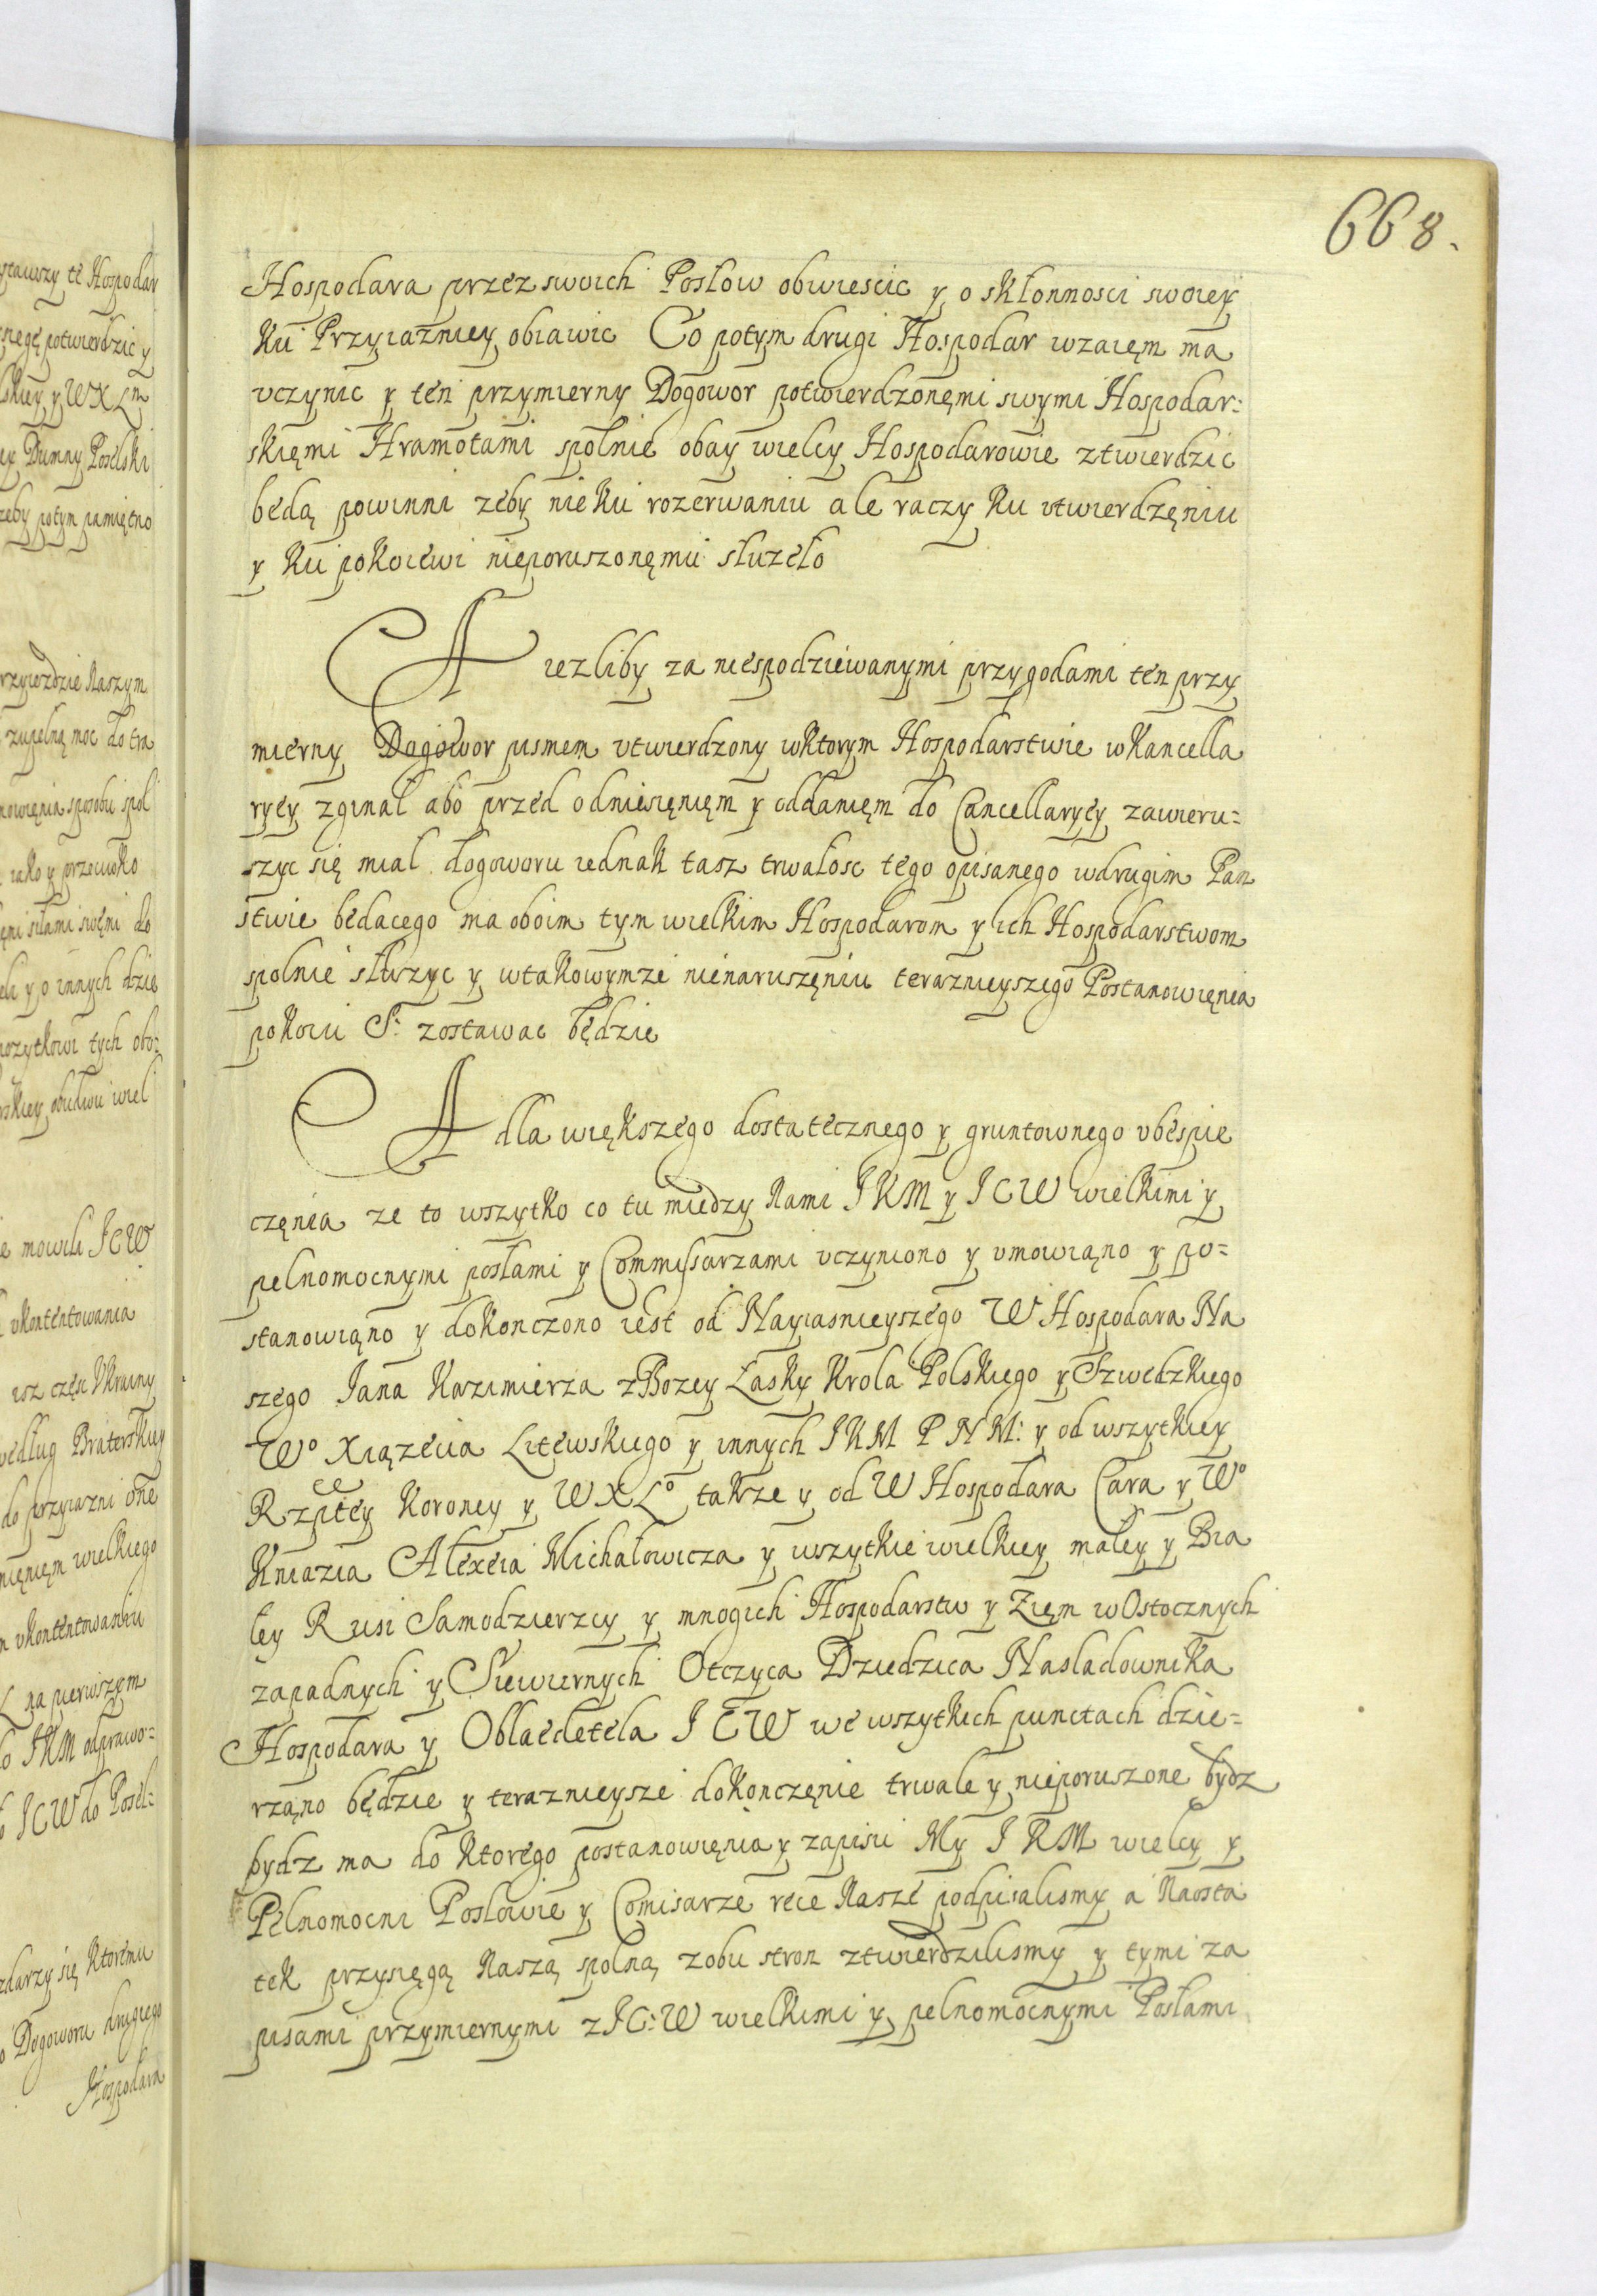 668.
Hospodara przez swoich Posłow obwiescic y o skłonnosci swoiey
ku Przyiazniey obiawic Co potym drugi Hospodar wzaięm ma
vczynic y ten przymierny Dogowor potwierdzonęmi swymi Hospodar:
skięmi Hramotami spolnie obay wielcy Hospodarowie ztwierdzic
będą powinni zeby nie ku rozerwaniu ale raczy ku vtwierdzęniu
y ku pokoiewi nieporuszonęmu słuzeło
A iezliby za niespodziewanymi przygodami ten przy
mierny Dogowor pismem vtwierdzony wktorym Hospodarstwie wkancella
ryey zginał abo przed odniesięnięm y oddanięm do Cancellaryey zawieru=
szyc się miał dogoworu iednak tasz trwałosc tego opisanego wdrugim Pan
stwie będacego ma oboim tym wielkim Hospodarom y ich Hospodarstwom
spolnie słuszyc y wtakowymze nienaruszęniu teraznieyszego Postanowięnia
pokoiu S: zostawac będzie
A dla większego dostatecznego y gruntownego vbespie
częnia ze to wszytko co tu miedzy Nami JKM y JCW wielkimi y
pelnomocnymi posłami y Commissarzami vczyniono y vmowiąno y po=
stanowiąno y dokonczono iest od Nayiasnieyszego W Hospodara Na
szego Jana Kazimierza z Bozey Łasky Krola Polskiego y Szwedzkiego
Wº Xiązecia Litewskiego y innych JKM P N M: y od wszytkiey
Rzpltey Koroney y W X Lº takze y od W Hospodara Cara y Wº
Kniazia Alexeia Michałowicza y wszytkie wielkiey małey y Bia
łey Rusi Samodzierzcy y mnogich Hospodarstw y Zięm wOstocznych
zapadnych y Siewiernych Otczyca Dziedzica Nasladownika
Hospodara y Obladetela J C W we wszytkich punctach dzie=
rząno będzie y teraznieysze dokonczęnie trwałe y nieporuszone bydz
bydz ma do ktorego postanowięnia y zapisu My J K M wielcy y
Pełnomocni Posłowie y Comisarze ręce Nasze podpisalismy a Naosta
tek przysięgą Naszą spolną zobu stron ztwierdzilismy y tymi za
pisami przymiernymi z JC:W wielkimi y pelnomocnymi Posłami